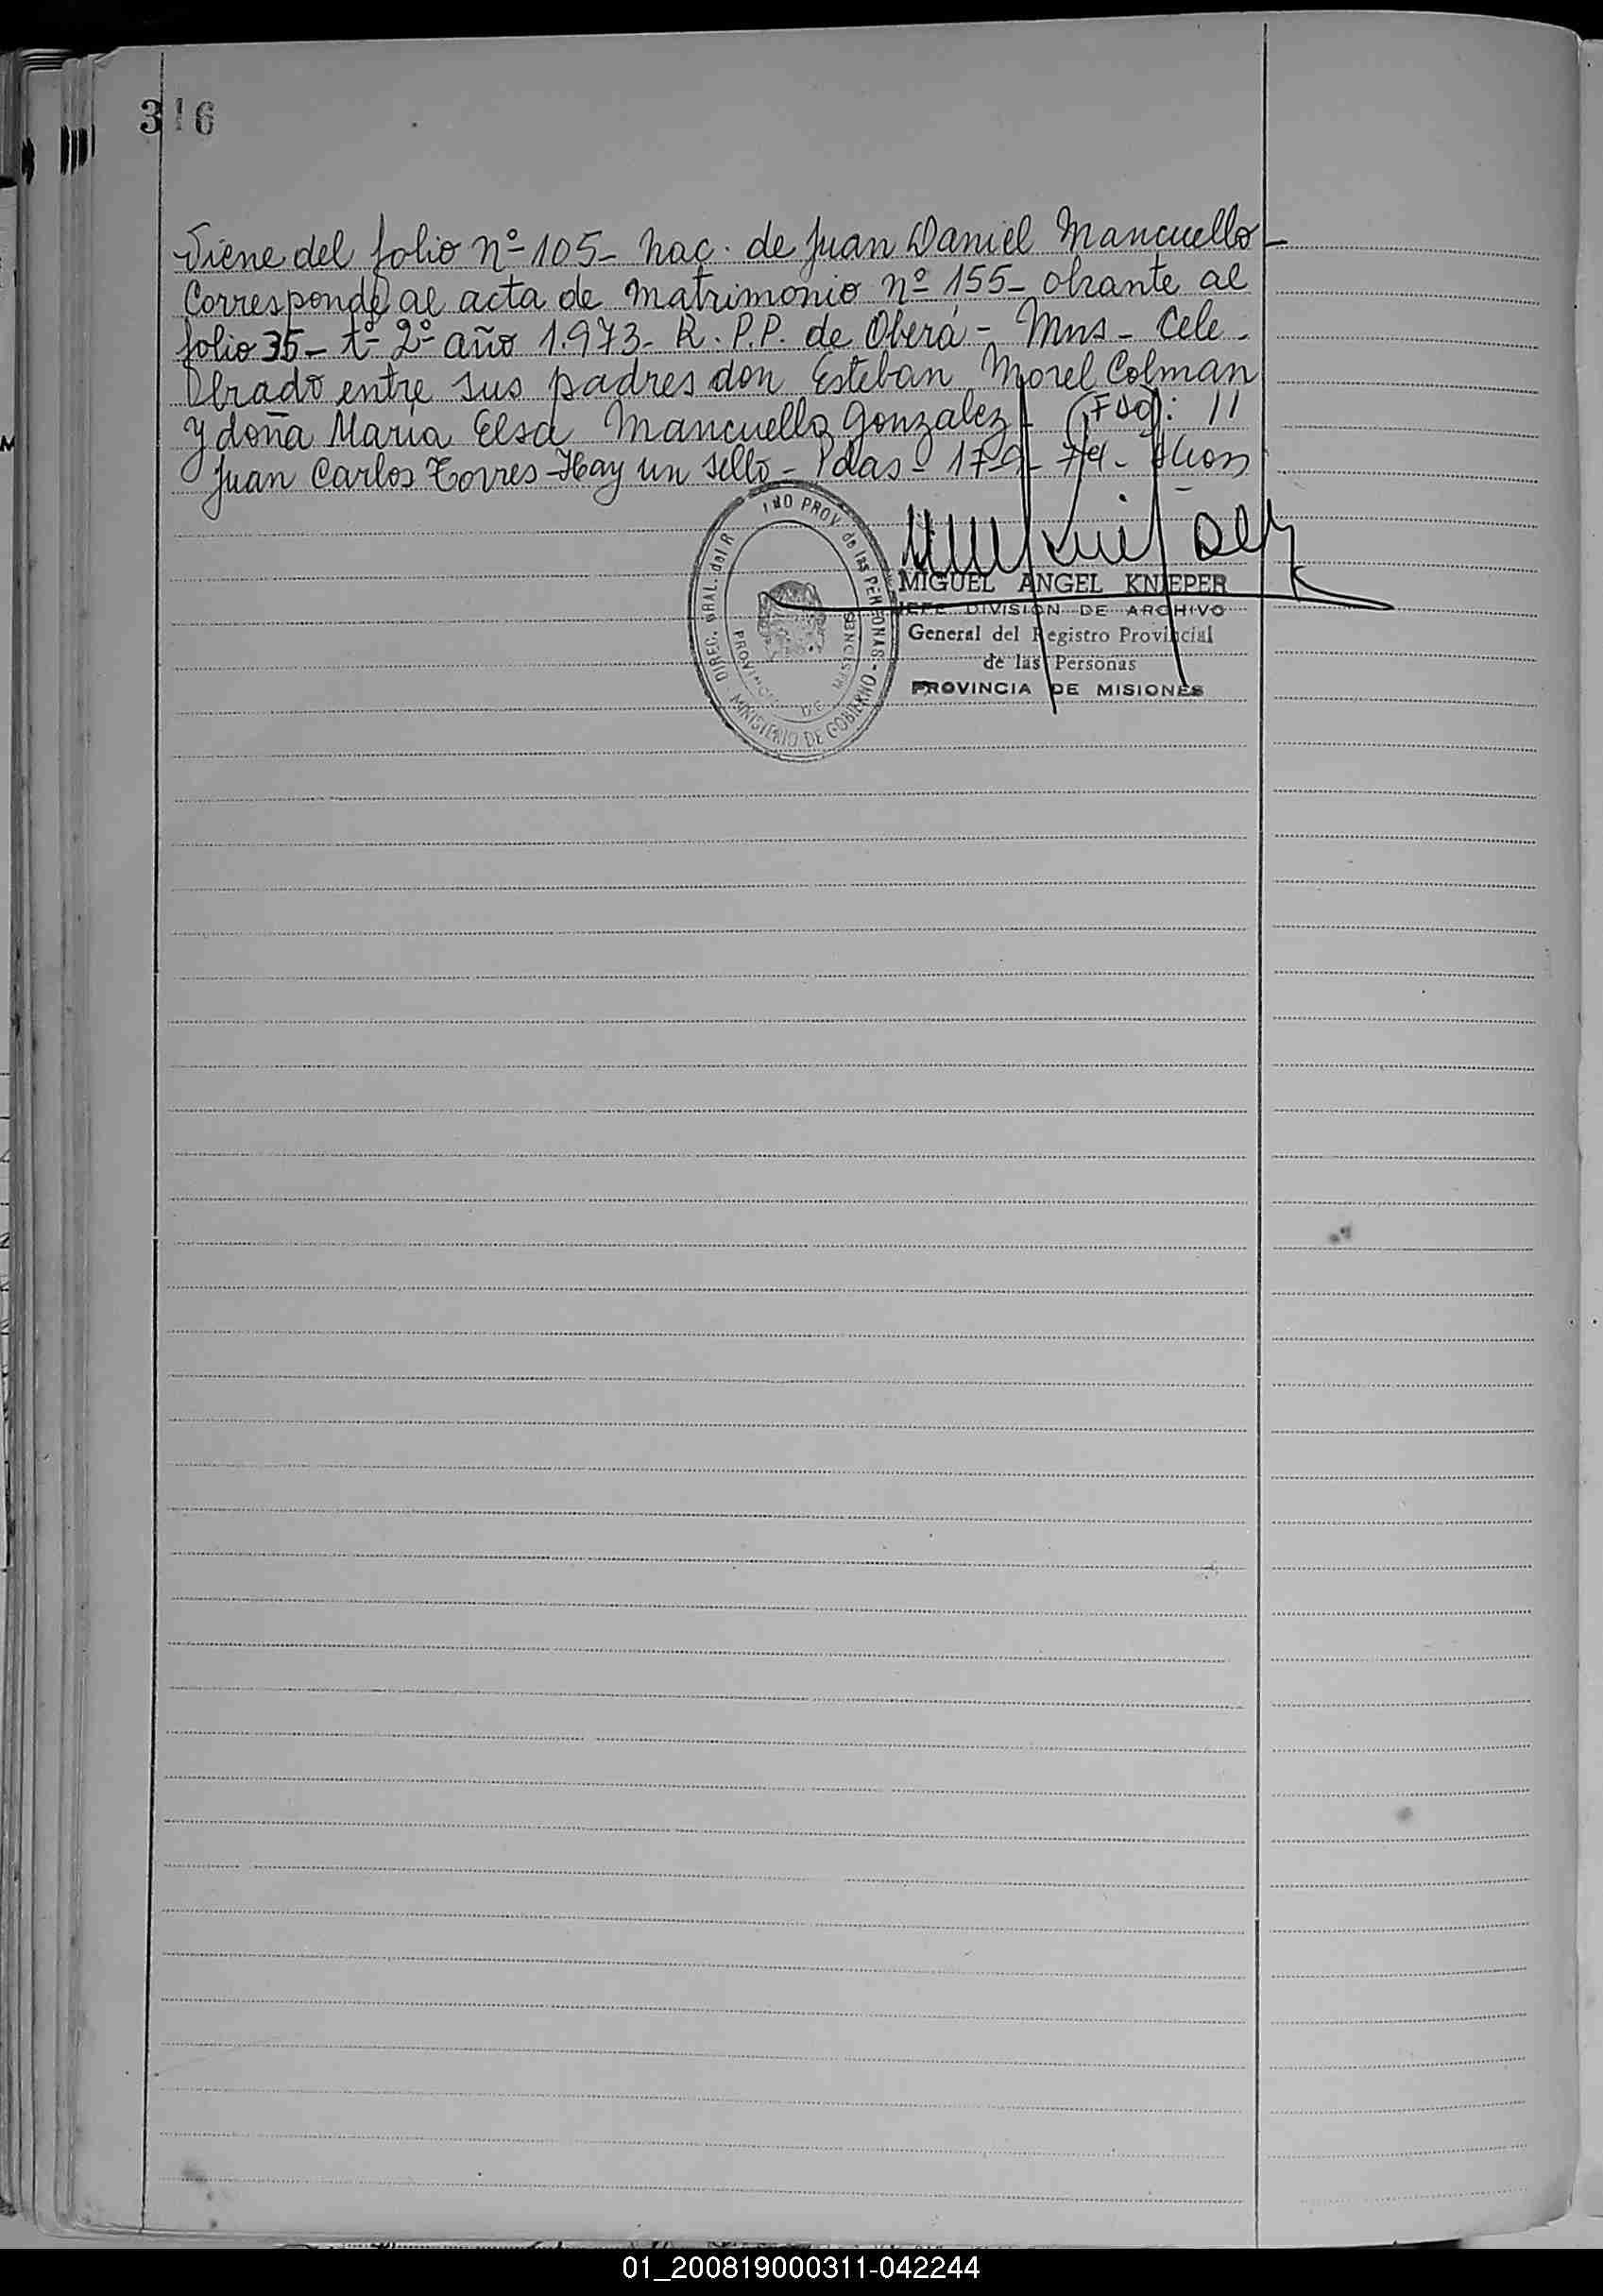 316
Viene del folio nº 105- nac. de Juan Daniel Mancuello-
Corresponde al acta de matrimonio nº 155- obrante al
folio 35- tº 2º año 1.973- R.P.P. de Oberá- Mns- Cele-
brado entre sus padres don Esteban Morel Colman
y doña María Elsa Mancuello Gonzalez- (Fdo): 11
Juan Carlos Torres- Hay un sello- Pdas- 17-9-74-
DIREC. GRAL. del R PROV de las PERSONAS - MINISTERIO DE GOBIERNO
PROVINCIA DE MISIONES
MIGUEL ANGEL KNIEPER
JEFE DIVISION DE ARCHIVO
General del Registro Provincial
de las Personas
PROVINCIA DE MISIONES
01_200819000311-042244